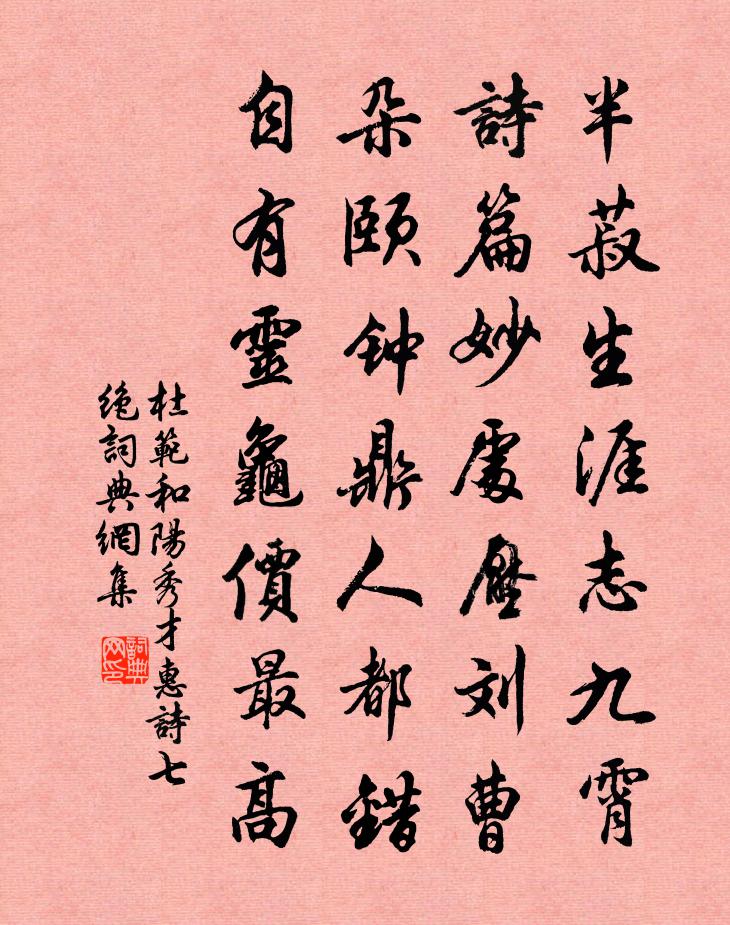 半菽生涯志九霄
詩篇妙處壓刘曹
朵颐钟鼎人都錯
自有靈龜價最高
杜範和陽秀才惠詩七
絶詞典網集
詞典网印